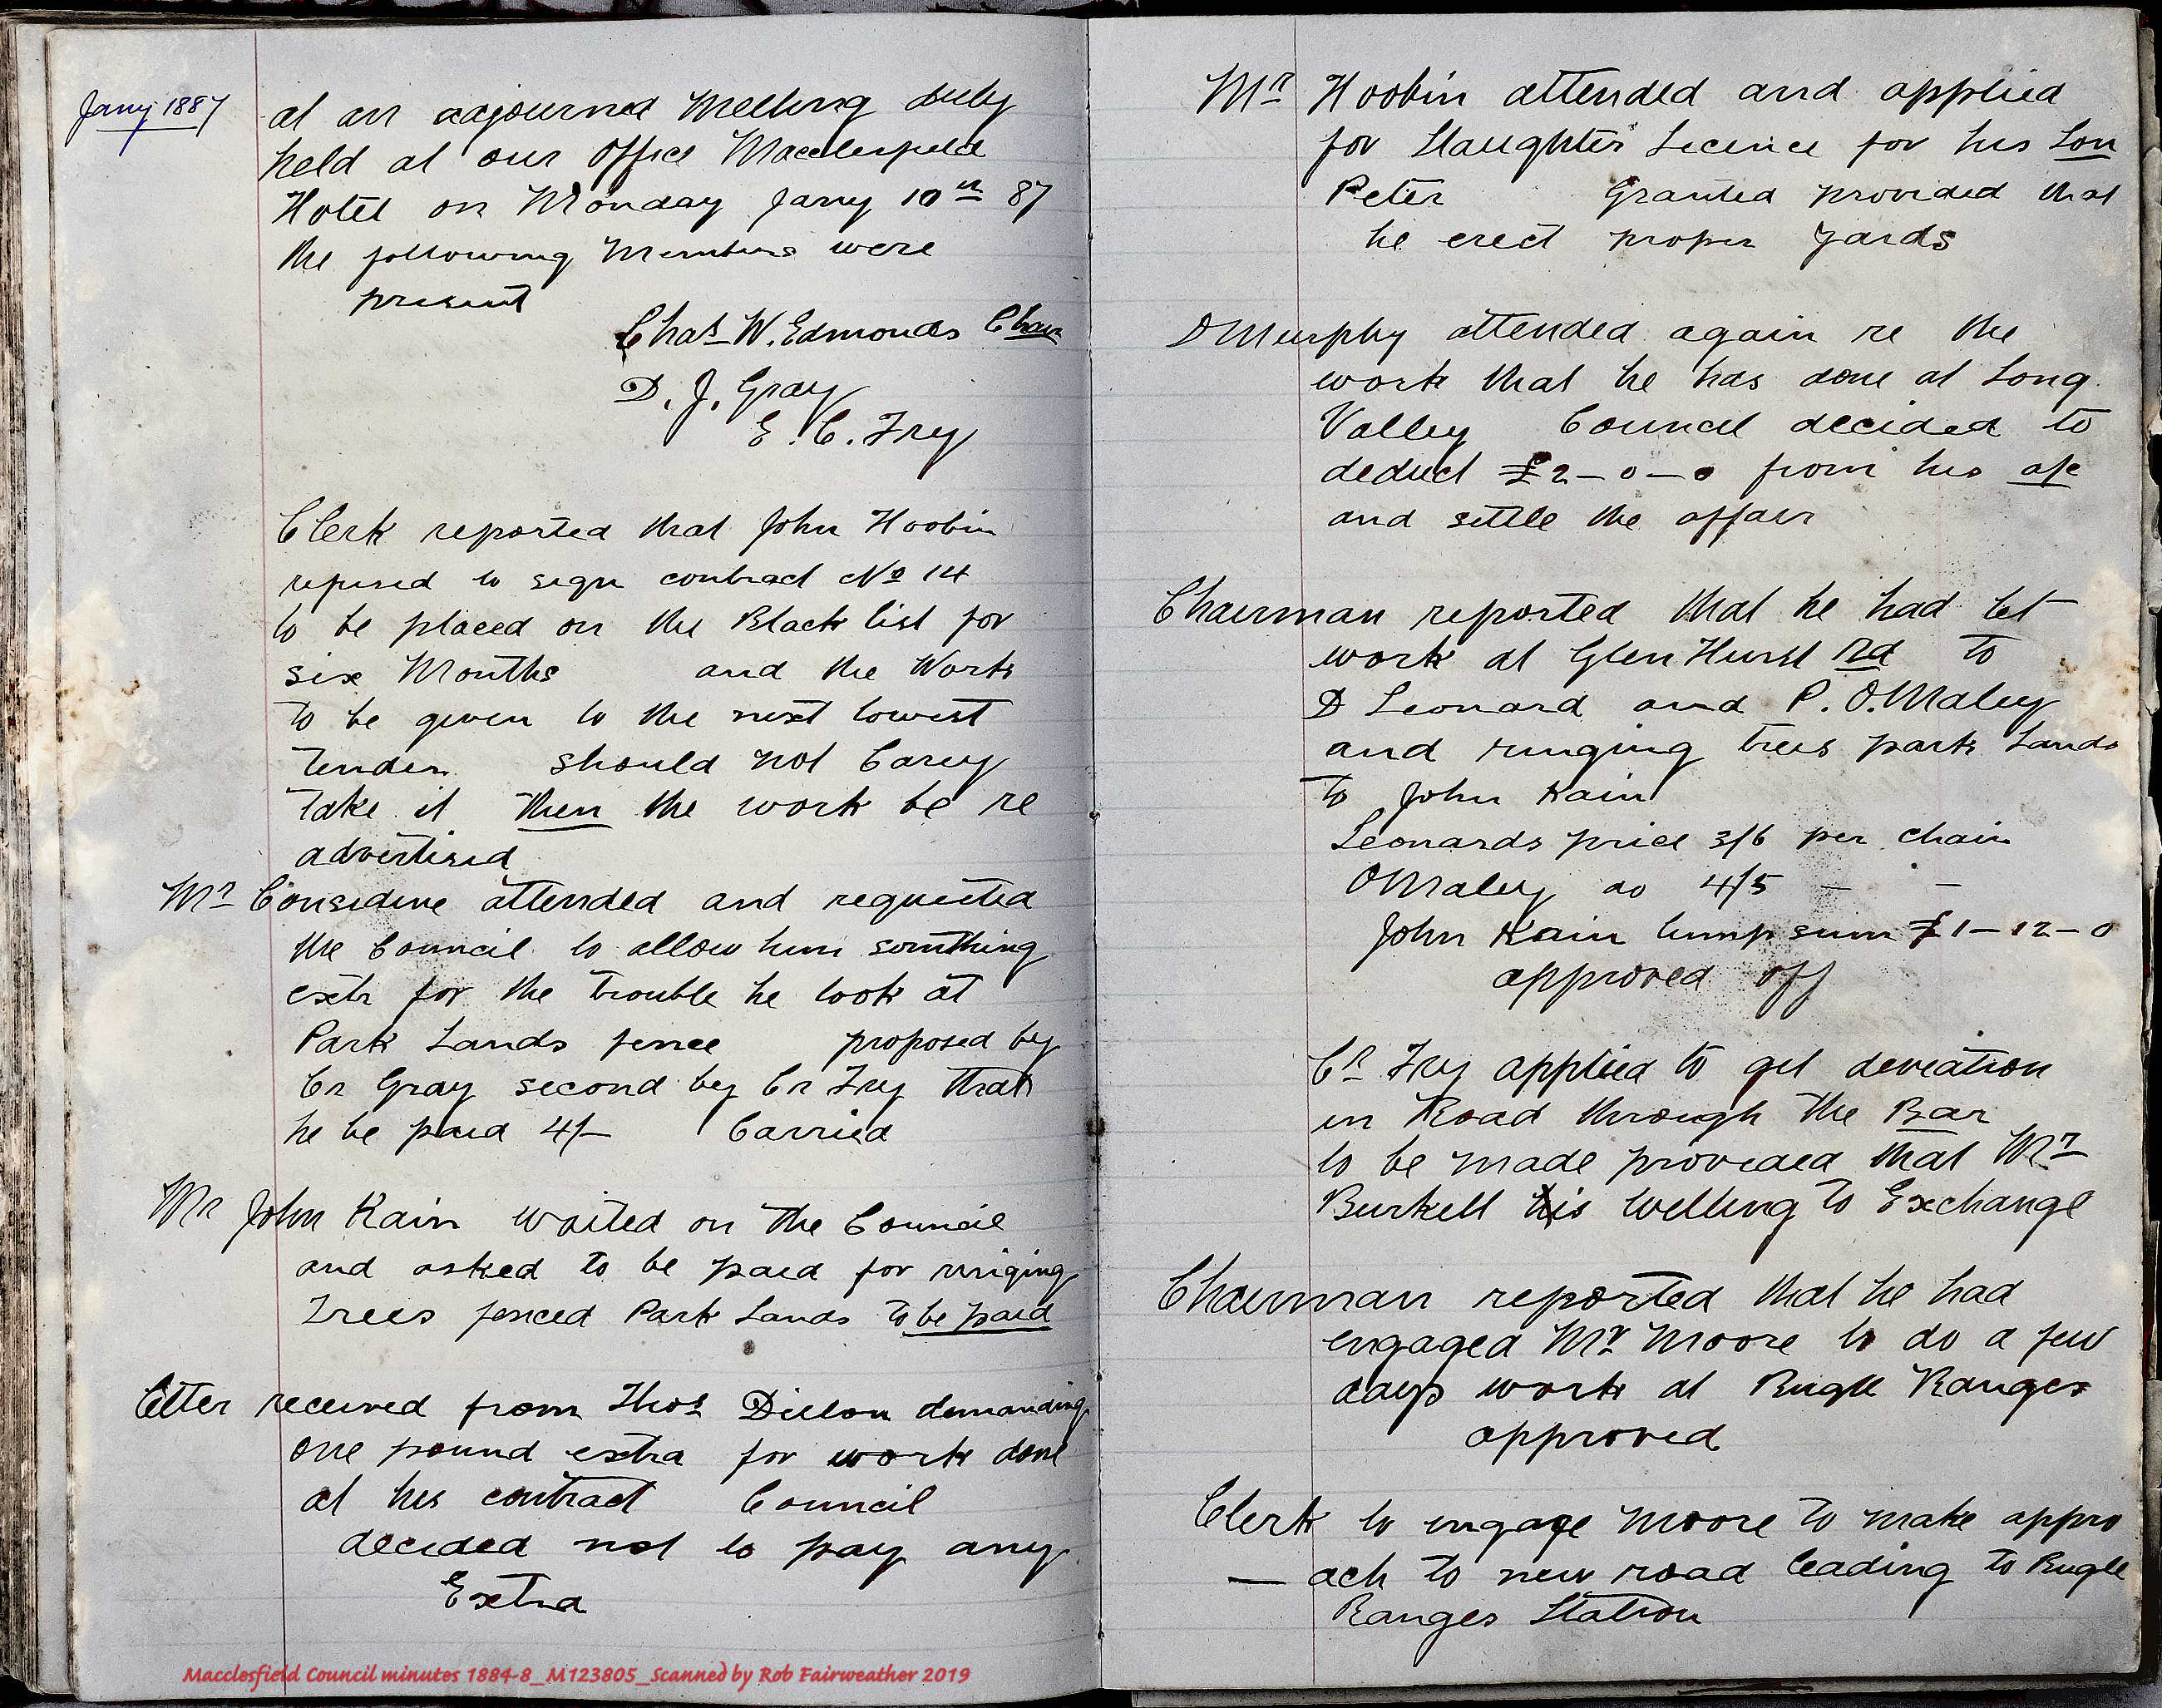 Jany 1887
at an adjourned Meeting duly
held at our Office Macclesfield
Hotel on Monday Jany 10th 87
the following Members were
present
Chas W. Edmonds Chair
D. J. Gray
E. C. Fry
Clerk reported that John Hoobin
refused to sign contract No 14
to be placed on the Black list for
six Months and the Work
to be given to the next lowest
Tender should not Carey
take it then the work be re
advertised
Mr Considine attended and requested
the Council to allow him something
extr for the trouble he took at
Park Lands fence proposed by
Cr Gray second by Cr Fry that
he be paid 4/- Carried
Mr John Kain waited on the Council
and asked to be paid for ringing
Trees fenced Park Lands to be paid
Letter received from Thos Dillon demanding
one pound extra for work done
at his contract Council
decided not to pay any
Extra
Mr Hoobin attended and applied
for Slaughter Licence for his Son
Peter Granted provided that
he erect proper yards
D Murphy attended again re the
work that he has done at Long
Valley Council decided to
deduct £2-0-0 from his a/c
and settle the affair
Chairman reported that he had let
work at Glen Hurst Rd to
D Leonard and P. O.Maley
and ringing trees park Lands
to John Kain
Leonards price 3/6 per chain
OMaley do 4/5 - -
John Kain lump sum £1-12-0
approved off
Cr Fry applied to get deviation
in Road through the Bar
to be made provided that Mr
Burkell is willing to Exchange
Chairman reported that he had
engaged Mr Moore to do a few
days work at Bugle Ranges
approved
Clerk to engage Moore to make appro
- ach to new road leading to Bugle
Ranges Station
Macclesfield Council minutes 1884-8_M123805_Scanned by Rob Fairweather 2019